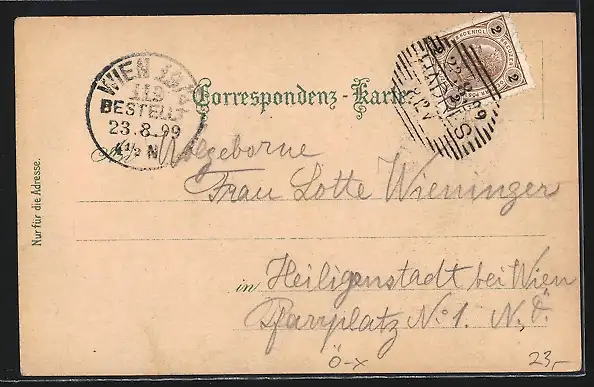 WIEN 19/3
119
BESTELLT
23.8.99
4½ N
Correspondenz-Karte.
2 2
23.8.99
Nur für die Adresse.
An Wolgeborne
Frau Lotte Wieninger
in Heiligenstadt bei Wien
Pfarrplatz No 1. N. Ö.
Ö-x
23,-